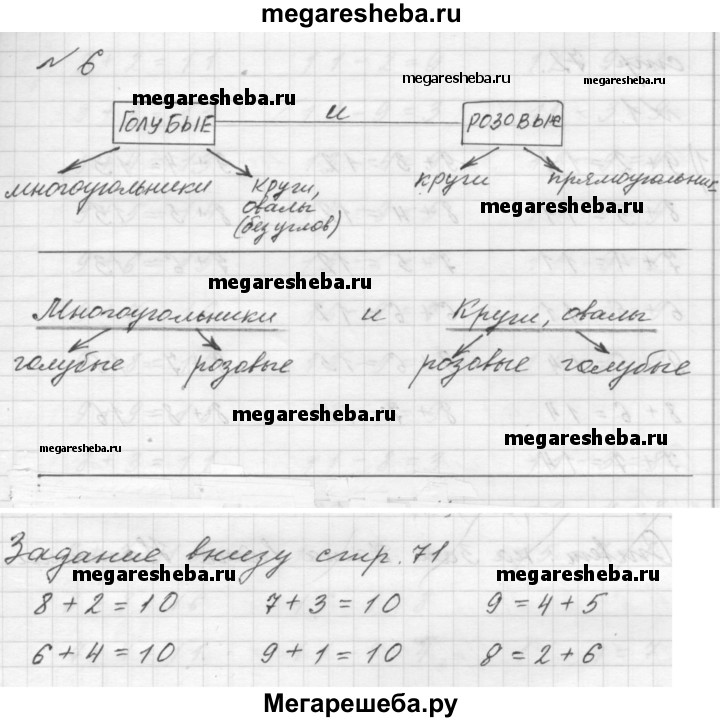 megaresheba.ru
№ 6
megaresheba.ru
megaresheba.ru
megaresheba.ru
ГОЛУБЫЕ и РОЗОВЫЕ
многоугольники круги, овалы (без углов) круги прямоугольник
megaresheba.ru
megaresheba.ru
Многоугольники и Круги, овалы
голубые розовые розовые голубые
megaresheba.ru
megaresheba.ru
megaresheba.ru
Задание внизу стр. 71
megaresheba.ru
megaresheba.ru
8 + 2 = 10 7 + 3 = 10 9 = 4 + 5
6 + 4 = 10 9 + 1 = 10 8 = 2 + 6
Мегарешеба.ру